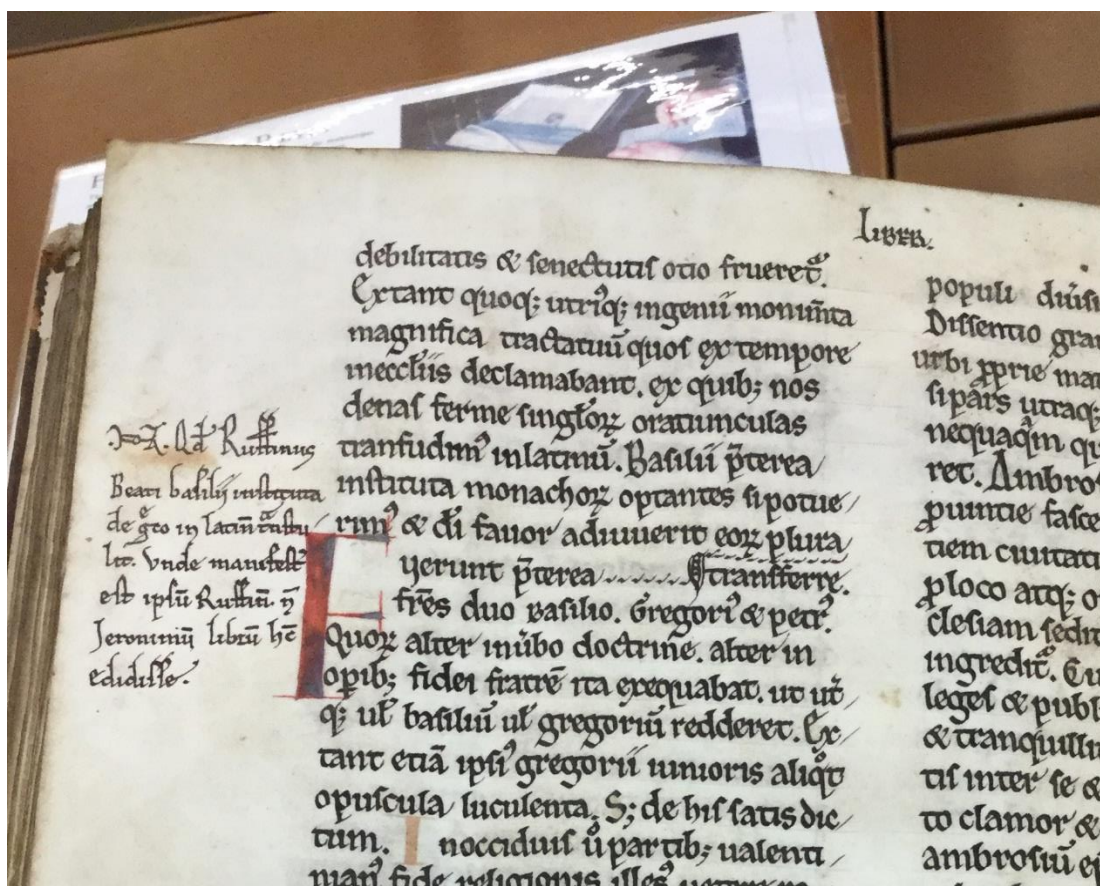 Libr.
debilitatis & senectutis otio frueret᷑.
Extant quoq; utriq; ingenii monim̅ta
magnifica tractatuū quos ex tempore
ineccl̅iis declamabant. ex quib; nos
denas ferme singl̅oꝝ oratiunculas
transfudimꝰ inlatinū. Basilii p̅terea
instituta monachoꝝ optantes sipotue
rimꝰ & di̅ fauor adiuuerit eoꝝ plura
transferre.
Fuerunt p̅terea
fr̅es duo basilio. Gregoriꝰ & petrꝰ.
Quoꝝ alter inu̅bo doctrine. alter in
opib; fidei fratrē ita exequabat. ut ut̅
q; ul̅ basiliū ul̅ gregoriū redderet. Ex
tant etiā ipsiꝰ gregorii iunioris aliq̅t
opuscula luculenta. S; de his satis dic
tum. Inocciduis ů partib; ualenti
nianꝰ fide religionis illesꝰ
Ruffinus
Beati basilij instituta
de g̅co in latin̅
lit. Vnde manifest᷑
est ipsū Ruffin̅. n̅
Jeronimū librū hc̅
edidisse.
populi
Dissentio
urbi ꝓprie
sipars utraq;
nequaq̅m
ret. Ambro
ꝓuintie
tiem ciuitati
ꝓloco atq;
clesiam
ingredit᷑.
leges & publ
& tranquilli
tis inter se &
to clamor &
ambrosiū